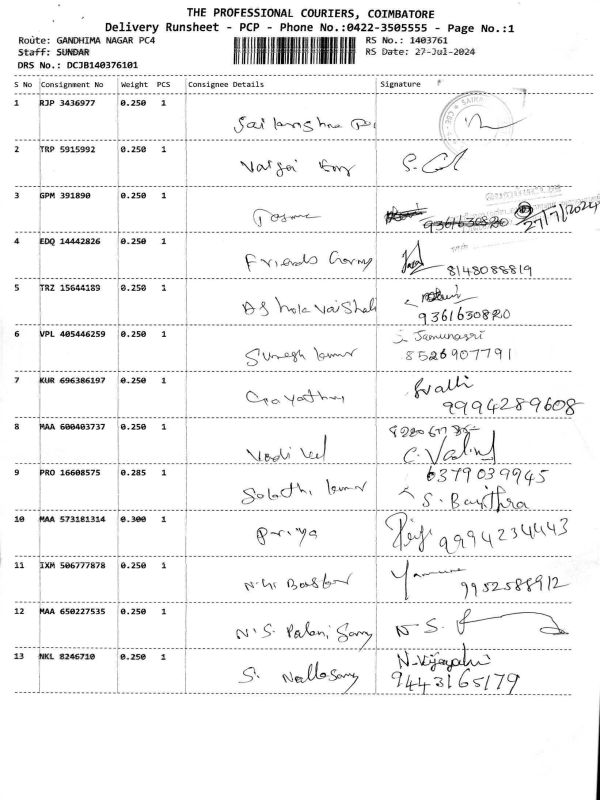 THE PROFESSIONAL COURIERS, COIMBATORE
Delivery Runsheet - PCP - Phone No.:0422-3505555 - Page No.:1
Route: GANDHIMA NAGAR PC4
RS No.: 1403761
Staff: SUNDAR
RS Date: 27-Jul-2024
DRS No.: DCJB140376101
S No Consignment No Weight PCS Consignee Details Signature
1 RJP 3436977 0.250 1
2 TRP 5915992 0.250 1
3 GPM 391890 0.250 1
9361630820 27/7/2024
4 EDQ 14442826 0.250 1
Friends
8148088819
5 TRZ 15644189 0.250 1
Ashok Vaishali
9361630820
6 VPL 405446259 0.250 1
Jamunasri
Suresh kumar
8526907791
7 KUR 696386197 0.250 1
Gayathri
9994289608
8 MAA 600403737 0.250 1
Vadivel
9 PRO 16608575 0.285 1
6379039945
kumar
S.
10 MAA 573181314 0.300 1
Priya
9994234443
11 IXM 506777878 0.250 1
Yamuna
9952588912
12 MAA 650227535 0.250 1
N.S. Palani Samy
N.S.
13 NKL 8246710 0.250 1
S. NallaSamy
9443165179